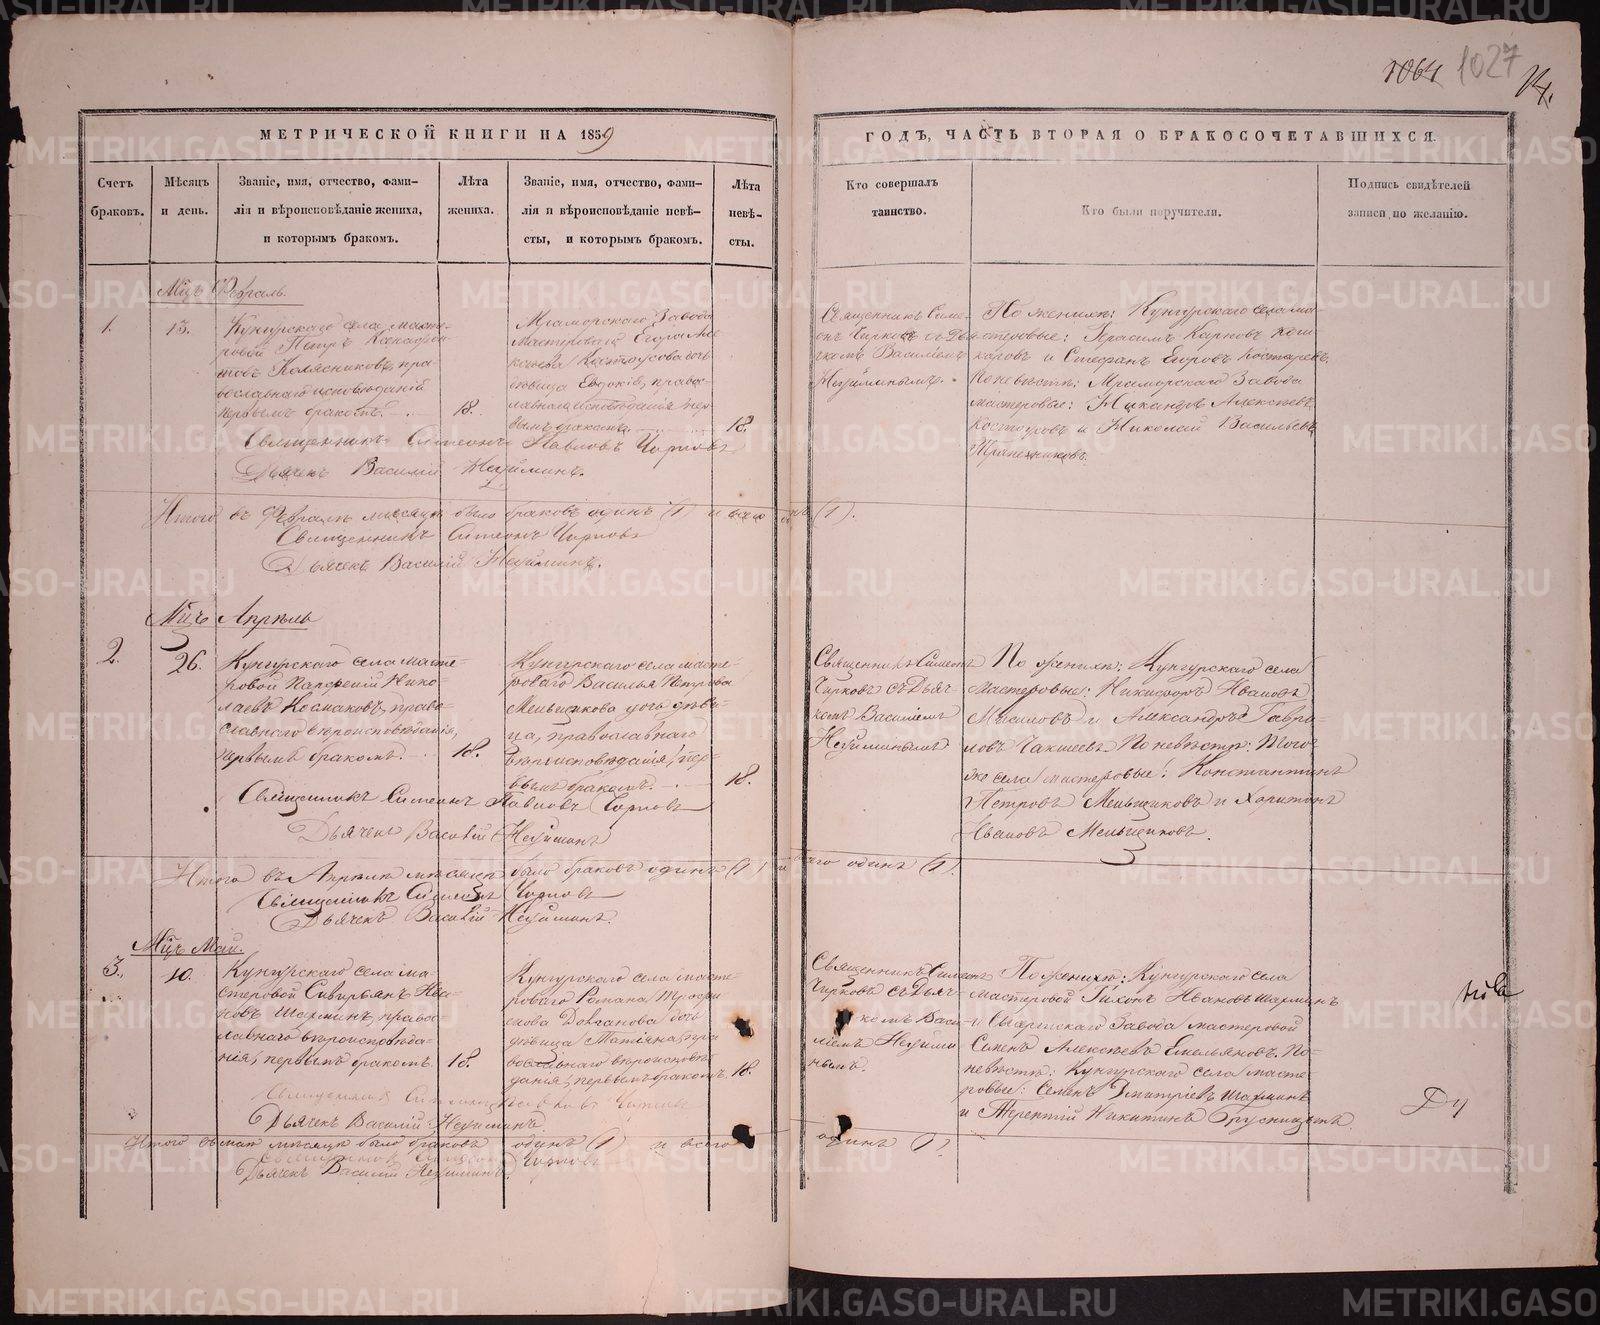 1064 1027
МЕТРИЧЕСКОЙ КНИГИ НА 1859
ГОДЪ, ЧАСТЬ ВТОРАЯ О БРАКОСОЧЕТАВШИХСЯ.
Счетъ
браковъ.
Мѣсяцъ
и день.
Званіе, имя, отчество, фами-
лія и вѣроисповѣданіе жениха,
и которымъ бракомъ.
Лѣта
жениха.
Званіе, имя, отчество, фами-
лія и вѣроисповѣданіе невѣ-
сты, и которымъ бракомъ.
Лѣта
невѣ-
сты.
Кто совершалъ
таинство.
Кто были поручители.
Подпись свидѣтелей
записи по желанію.
Мцъ Февраль.
1.
13.
Кунгурскаго села масте-
ровой Петръ
Колясниковъ, пра-
вославнаго исповѣданія
первымъ бракомъ.
18.
Мраморскаго Завода
Мастероваго Егора Але
ксѣева Костоусова дочь
дѣвица Евдокія, правос-
лавнаго исповѣданія пер-
вымъ бракомъ
18.
Священникъ Симе-
онъ Чирковъ съ Дья
чкомъ Василіемъ
Неуйминымъ.
По женихѣ: Кунгурскаго села ма-
стеровые: Герасимъ Карповъ
и Стефанъ Егоровъ Костаревъ.
По невѣстѣ: Мраморскаго Завода
мастеровые: Никандръ Алексѣевъ
Костоусовъ и Николай Васильевъ
Трапезниковъ.
Священникъ Симеонъ Павловъ Чирковъ
Дьячекъ Василій Неуйминъ.
Итого въ Февралѣ мѣсяцѣ было браковъ одинъ (1) и всего одинъ (1).
Священникъ Симеонъ Чирковъ
Дьячекъ Василій Неуйминъ.
Мцъ Апрѣль
2.
26.
Кунгурскаго села масте-
ровой Парфеній Нико-
лаевъ Космаковъ, право-
славнаго вѣроисповѣданія,
первымъ бракомъ.
18.
Кунгурскаго села масте-
роваго Василья Петрова
Меньщикова дочь дѣви-
ца, православнаго
вѣроисповѣданія, пер-
вымъ бракомъ.
18.
Священникъ Симеонъ
Чирковъ съ Дьяч-
комъ Василіемъ
Неуйминымъ
По женихѣ: Кунгурскаго села
мастеровые: Никифоръ Ивановъ
и Александръ Гаври-
ловъ Чакшеевъ По невѣстѣ: Того
же села мастеровые: Константинъ
Петровъ Меньщиковъ и Харитонъ
Ивановъ Меньщиковъ.
Священникъ Симеонъ Павловъ Чирковъ
Дьячекъ Василій Неуйминъ
Итого въ Апрѣлѣ мѣсяцѣ было браковъ одинъ (1) и всего одинъ (1).
Священникъ Симеонъ Чирковъ
Дьячекъ Василій Неуйминъ.
Мцъ Май.
3.
10.
Кунгурскаго села ма-
стеровой Сивирьянъ Ива-
новъ Шахминъ, правос-
лавнаго вѣроисповѣда-
нія, первымъ бракомъ.
18.
Кунгурскаго села масте-
роваго Романа Трофи
мова Долганова дочь
дѣвица Татіяна, пра
вославнаго вѣроисповѣ
данія, первымъ бракомъ.
18.
Священникъ Симеонъ
Чирковъ съ Дьяч-
комъ Васи-
ліемъ Неуйми
нымъ.
По женихѣ: Кунгурскаго села
мастеровой Тихонъ Ивановъ Шахминъ
и Сысертскаго Завода мастеровой
Семенъ Алексѣевъ Емельяновъ. По
невѣстѣ: Кунгурскаго села масте-
ровые: Семенъ Дмитріевъ Шахминъ
и Терентій Никитинъ
Священникъ Симеонъ Павловъ Чирковъ
Дьячекъ Василій Неуйминъ.
Итого въ маѣ мѣсяцѣ было браковъ одинъ (1) и всего одинъ (1).
Священникъ Симеонъ Чирковъ
Дьячекъ Василій Неуйминъ.
METRIKI.GASO-URAL.RU